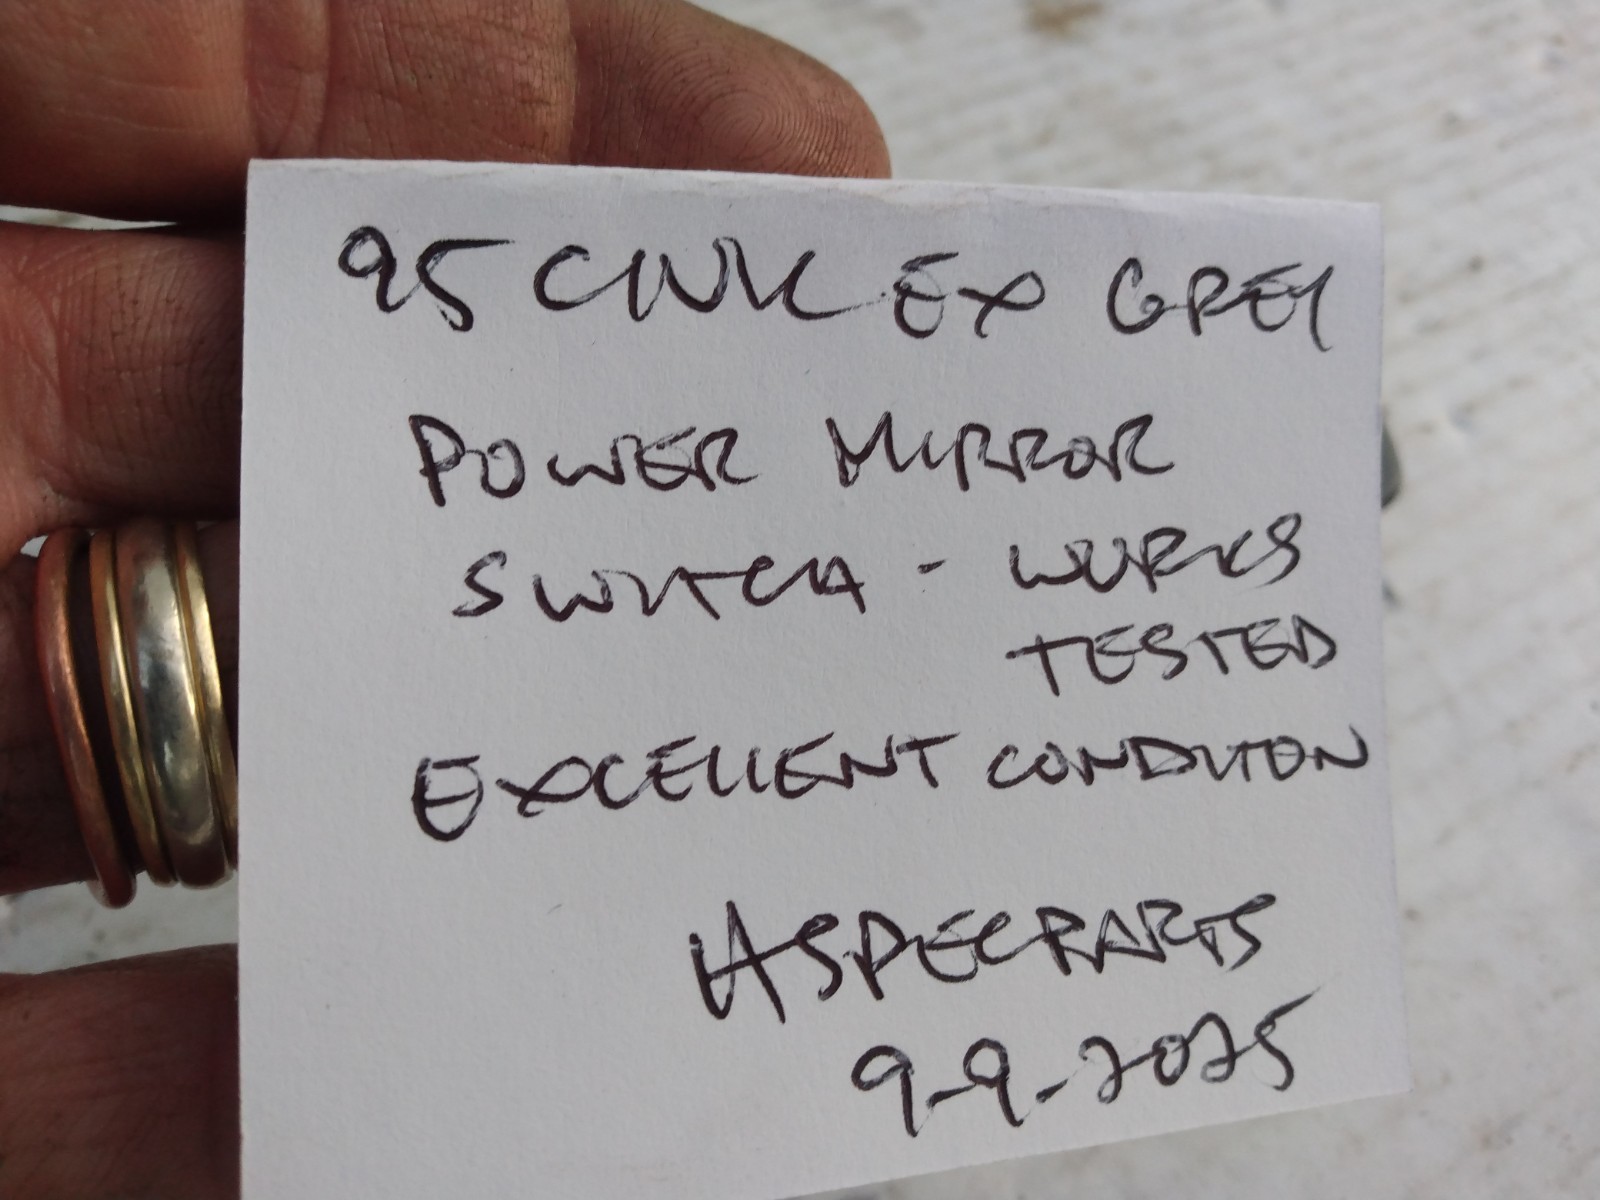 95 CIVIC EX GREY
POWER MIRROR
SWITCH - WORKS
TESTED
EXCELLENT CONDITION
HSPECPARTS
9-9-2025